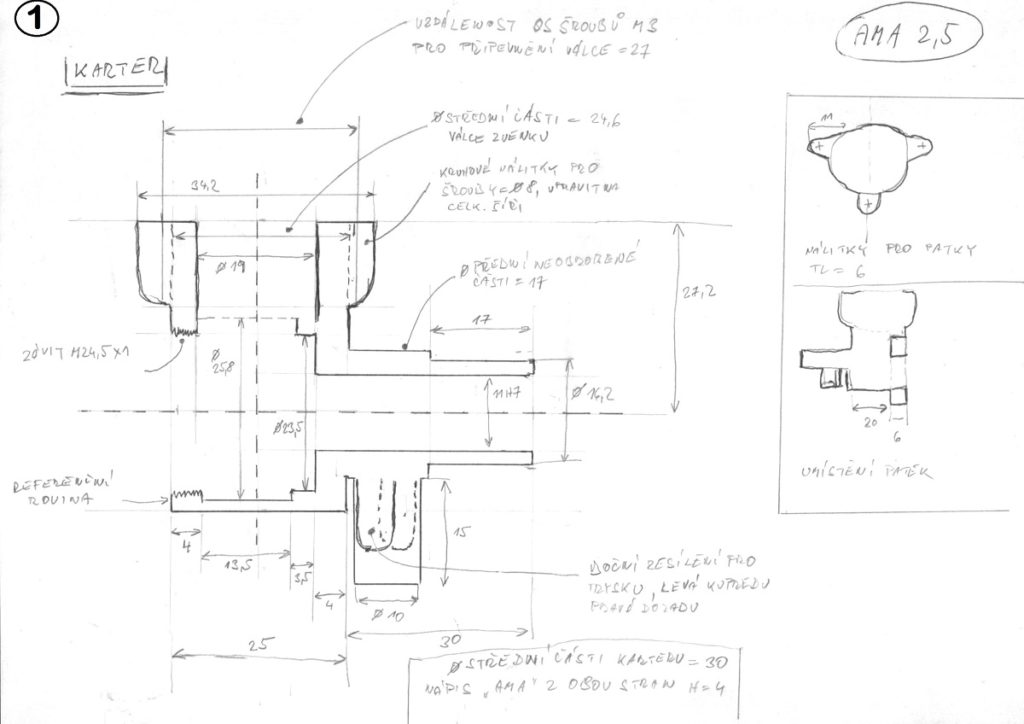 1
VZDÁLENOST OS ŠROUBŮ M3
PRO PŘIPEVNĚNÍ VÁLCE = 27
AMA 2,5
KARTER
Ø STŘEDNÍ ČÁSTI = 24,6
VÁLCE ZVENKU
KRUHOVÉ NÁLITKY PRO
ŠROUBY = Ø8, UPRAVIT NA
CELK. ŠÍŘI
34,2
Ø 19
Ø PŘEDNÍ NEOBOBRENÉ
ČÁSTI = 17
17
27,2
ZÁVIT M24,5 X1
Ø
25,8
Ø23,5
11H7
Ø 16,2
REFERENČNÍ
ROVINA
4
13,5
3,5
4
15
Ø 10
BOČNÍ ZESÍLENÍ PRO
TRYSKU, LEVÁ KUPŘEDU
PRAVÁ DOZADU
25
30
Ø STŘEDNÍ ČÁSTI KARTERU = 30
NÁPIS „AMA" Z OBOU STRAN H=4
11
NÁLITKY PRO PATKY
TL = 6
20
6
UMÍSTĚNÍ PATEK